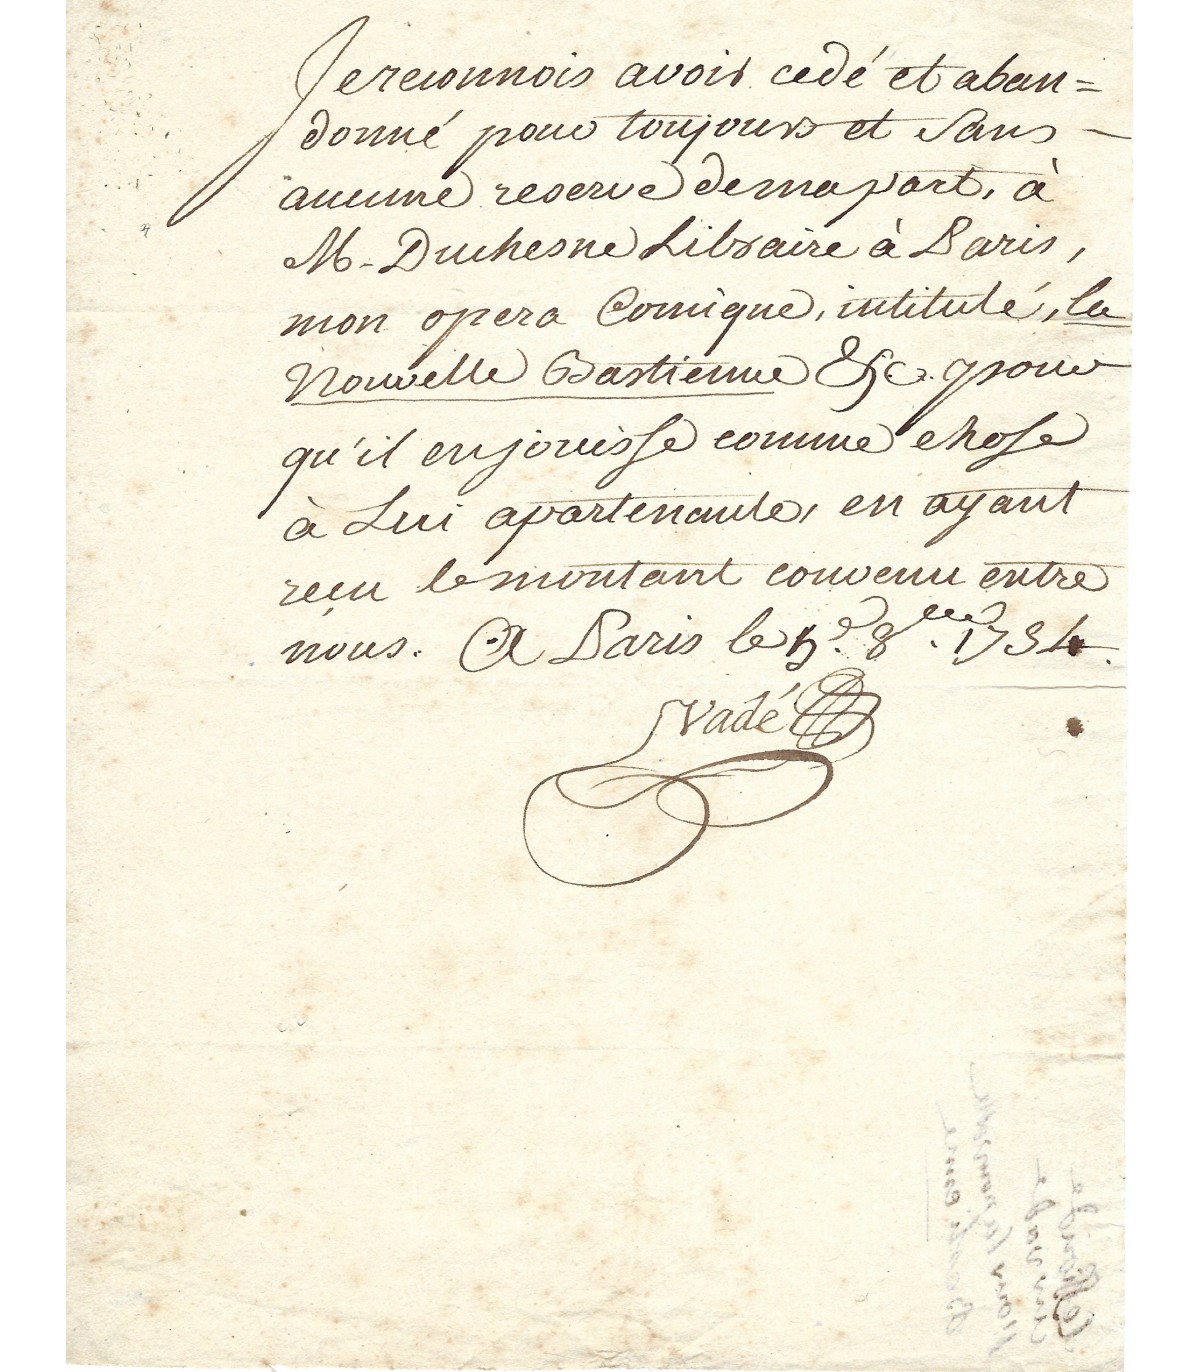 Je reconnois avoir cedé et aban=
donné pour toujours et sans
aucune reserve de ma part, à
M. Duchesne Libraire à Paris,
mon opera Comique, intitulé, la
Nouvelle Bastienne &c. pour
qu'il en jouisse comme chose
à Lui apartenante, en ayant
reçu le montant convenu entre
nous. A Paris le 5e. 8bre. 1754.
Vadé